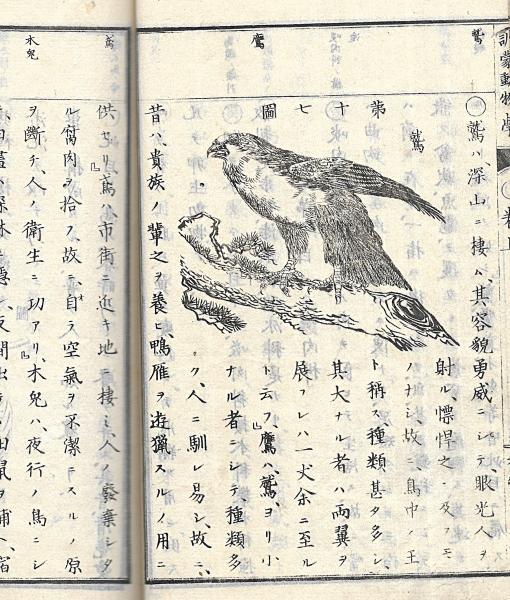 訓蒙動物學
卷上
鷲
鷹
鳶
木兎
鷲ハ、深山ニ棲ム、其容貌勇威ニシテ眼光人ヲ
射ル、慓悍之
ノナシ、故ニ、鳥中ノ王
ト稱ス、種類甚タ多シ、
其大ナル者ハ兩翼ヲ
展フレハ一丈余ニ至ル
ト云フ、』鷹ハ、鷲ヨリ小
ナル者ニシテ、種類多
ク、人ニ馴レ易シ、故ニ、
第
十
七
圖
鷲
昔ハ、貴族ノ輩之ヲ養ヒ、鴨雁ヲ遊獵スルノ用ニ
供セリ』鳶ハ、市街ニ近キ地ニ棲ミ、人ノ廢棄シタ
ル腐肉ヲ拾フ故ニ自ラ空氣ヲ不潔ニスルノ原
ヲ斷チ、人ノ衛生ニ功アリ、木兎ハ、夜行ノ鳥ニシ